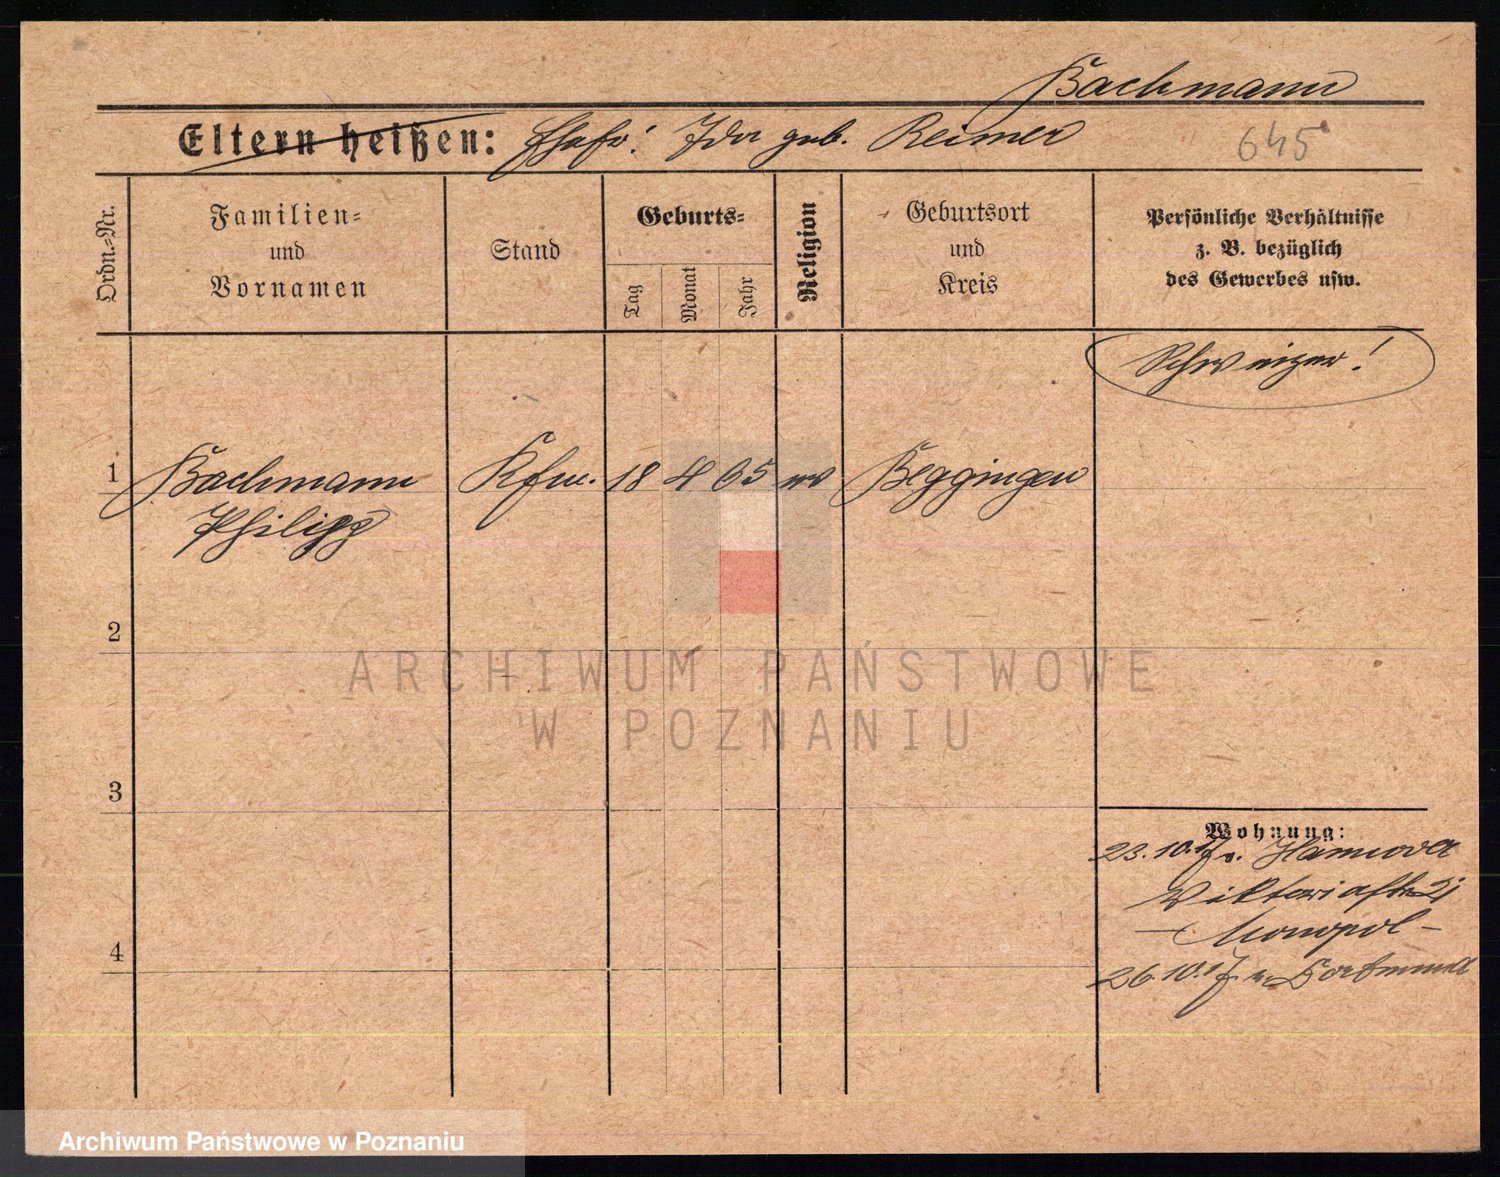 Bachmann
Eltern heißen: Ehefr: Ida geb. Reimer 645
Ordn.-Nr.
Familien- und Vornamen
Stand
Geburts-
Tag
Monat
Jahr
Religion
Geburtsort und Kreis
Persönliche Verhältnisse
z. B. bezüglich
des Gewerbes usw.
Schweizer!
1 Bachmann Kfm. 18 4 65 ev Beggingen
Philipp
2
3
4
Wohnung:
23.10.17 v. Hannover
Viktoriastr 21
— Monopol —
26.10.17 n. Dortmund
ARCHIWUM PAŃSTWOWE
W POZNANIU
Archiwum Państwowe w Poznaniu